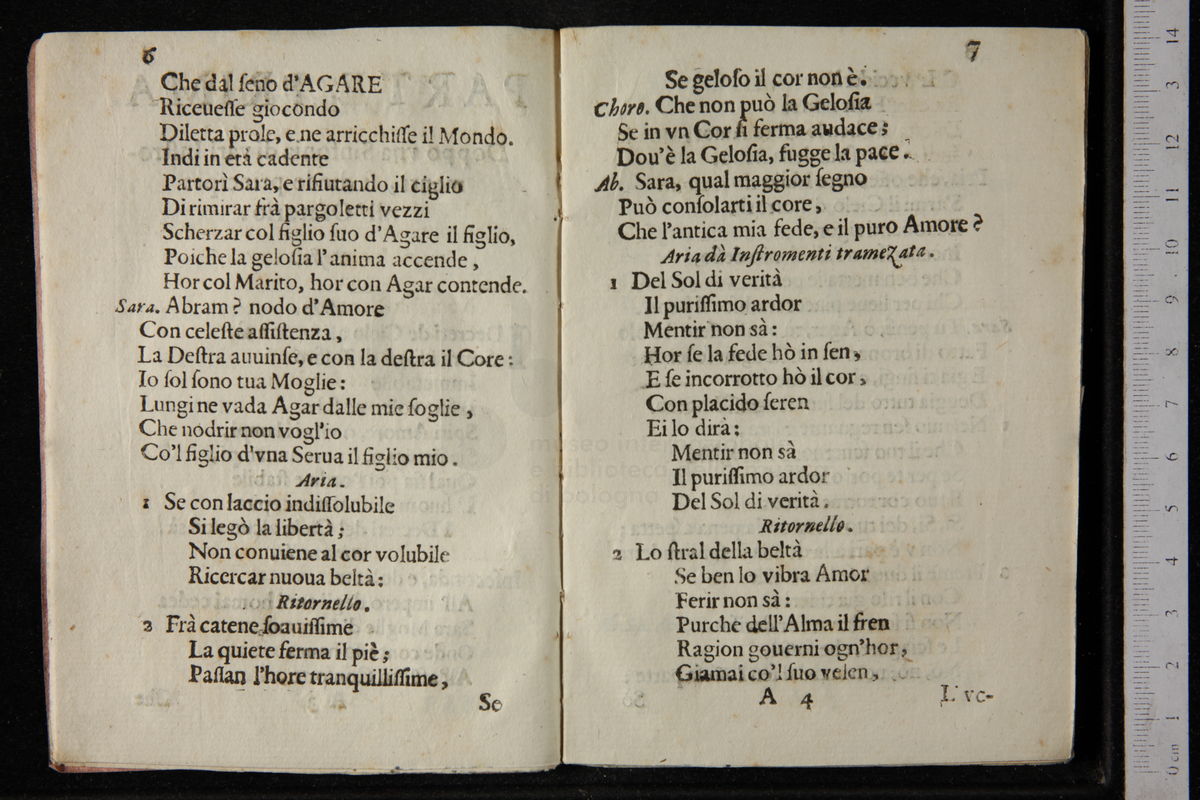 6
Che dal ſeno d'AGARE
Riceueſſe giocondo
Diletta prole, e ne arricchiſſe il Mondo.
Indi in età cadente
Partorì Sara, e rifiutando il ciglio
Di rimirar frà pargoletti vezzi
Scherzar col figlio ſuo d'Agare il figlio,
Poiche la geloſia l'anima accende,
Hor col Marito, hor con Agar contende.
Sara. Abram? nodo d'Amore
Con celeſte aſſiſtenza,
La Deſtra auuinſe, e con la deſtra il Core:
Io ſol ſono tua Moglie:
Lungi ne vada Agar dalle mie ſoglie,
Che nodrir non vogl'io
Co'l figlio d'vna Serua il figlio mio.
Aria.
1 Se con laccio indiſſolubile
Si legò la libertà;
Non conuiene al cor volubile
Ricercar nuoua beltà:
Ritornello.
2 Frà catene ſoauiſſime
La quiete ferma il piè;
Paſſan l'hore tranquilliſſime,
Se
7
Se geloſo il cor non è.
Choro. Che non può la Geloſia
Se in vn Cor ſi ferma audace;
Dou'è la Geloſia, fugge la pace.
Ab. Sara, qual maggior ſegno
Può conſolarti il core,
Che l'antica mia fede, e il puro Amore?
Aria dà Inſtromenti tramezata.
1 Del Sol di verità
Il puriſſimo ardor
Mentir non sà:
Hor ſe la fede hò in ſen,
E ſe incorrotto hò il cor,
Con placido ſeren
Ei lo dirà:
Mentir non sà
Il puriſſimo ardor
Del Sol di verità.
Ritornello.
2 Lo ſtral della beltà
Se ben lo vibra Amor
Ferir non sà:
Purche dell'Alma il fren
Ragion gouerni ogn'hor,
Giamai co'l ſuo velen,
A 4
L'vc-